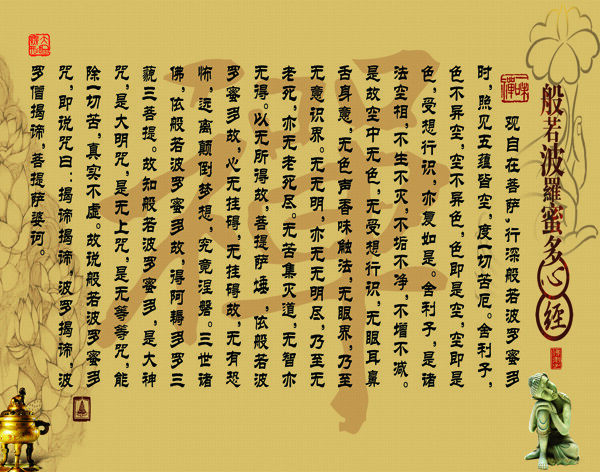 般若波羅蜜多心經
观自在菩萨,行深般若波罗蜜多
时,照见五蕴皆空,度一切苦厄。舍利子,
色不异空,空不异色,色即是空,空即是
色,受想行识,亦复如是。舍利子,是诸
法空相,不生不灭,不垢不净,不增不减。
是故空中无色,无受想行识,无眼耳鼻
舌身意,无色声香味触法,无眼界,乃至
无意识界。无无明,亦无无明尽,乃至无
老死,亦无老死尽。无苦集灭道,无智亦
无得。以无所得故,菩提萨埵,依般若波
罗蜜多故,心无挂碍,无挂碍故,无有恐
怖,远离颠倒梦想,究竟涅磐。三世诸
佛,依般若波罗蜜多故,得阿耨多罗三
藐三菩提。故知般若波罗蜜多,是大神
咒,是大明咒,是无上咒,是无等等咒,能
除一切苦,真实不虚。故说般若波罗蜜多
咒,即说咒曰:揭谛揭谛,波罗揭谛,波
罗僧揭谛,菩提萨婆诃。
禪